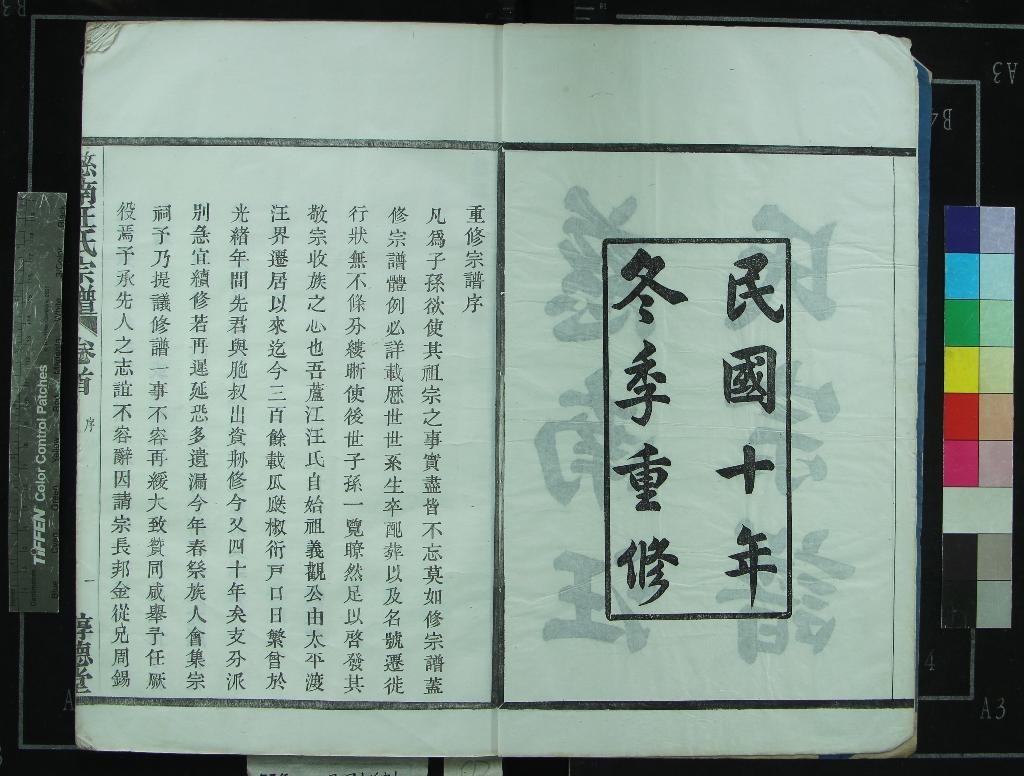 民國十年
冬季重修
重修宗譜序
凡爲子孫欲使其祖宗之事實盡皆不忘莫如修宗譜蓋
修宗譜體例必詳載歷世世系生卒配葬以及名號遷徙
行狀無不條分縷晰使後世子孫一覽瞭然足以啓發其
敬宗收族之心也吾蘆江汪氏自始祖義觀公由太平渡
汪界遷居以來迄今三百餘載瓜瓞椒衍戸口日繁曾於
光緒年間先君與胞叔出資刱修今又四十年矣支分派
別急宜續修若再遲延恐多遺漏今年春祭族人會集宗
祠予乃提議修譜一事不容再緩大致贊同咸舉予任厥
役焉予承先人之志誼不容辭因請宗長邦金從兄周錫
慈南汪氏宗譜 卷首 序 一 惇德堂
TIFFEN Color Control Patches
A3
B4
A3